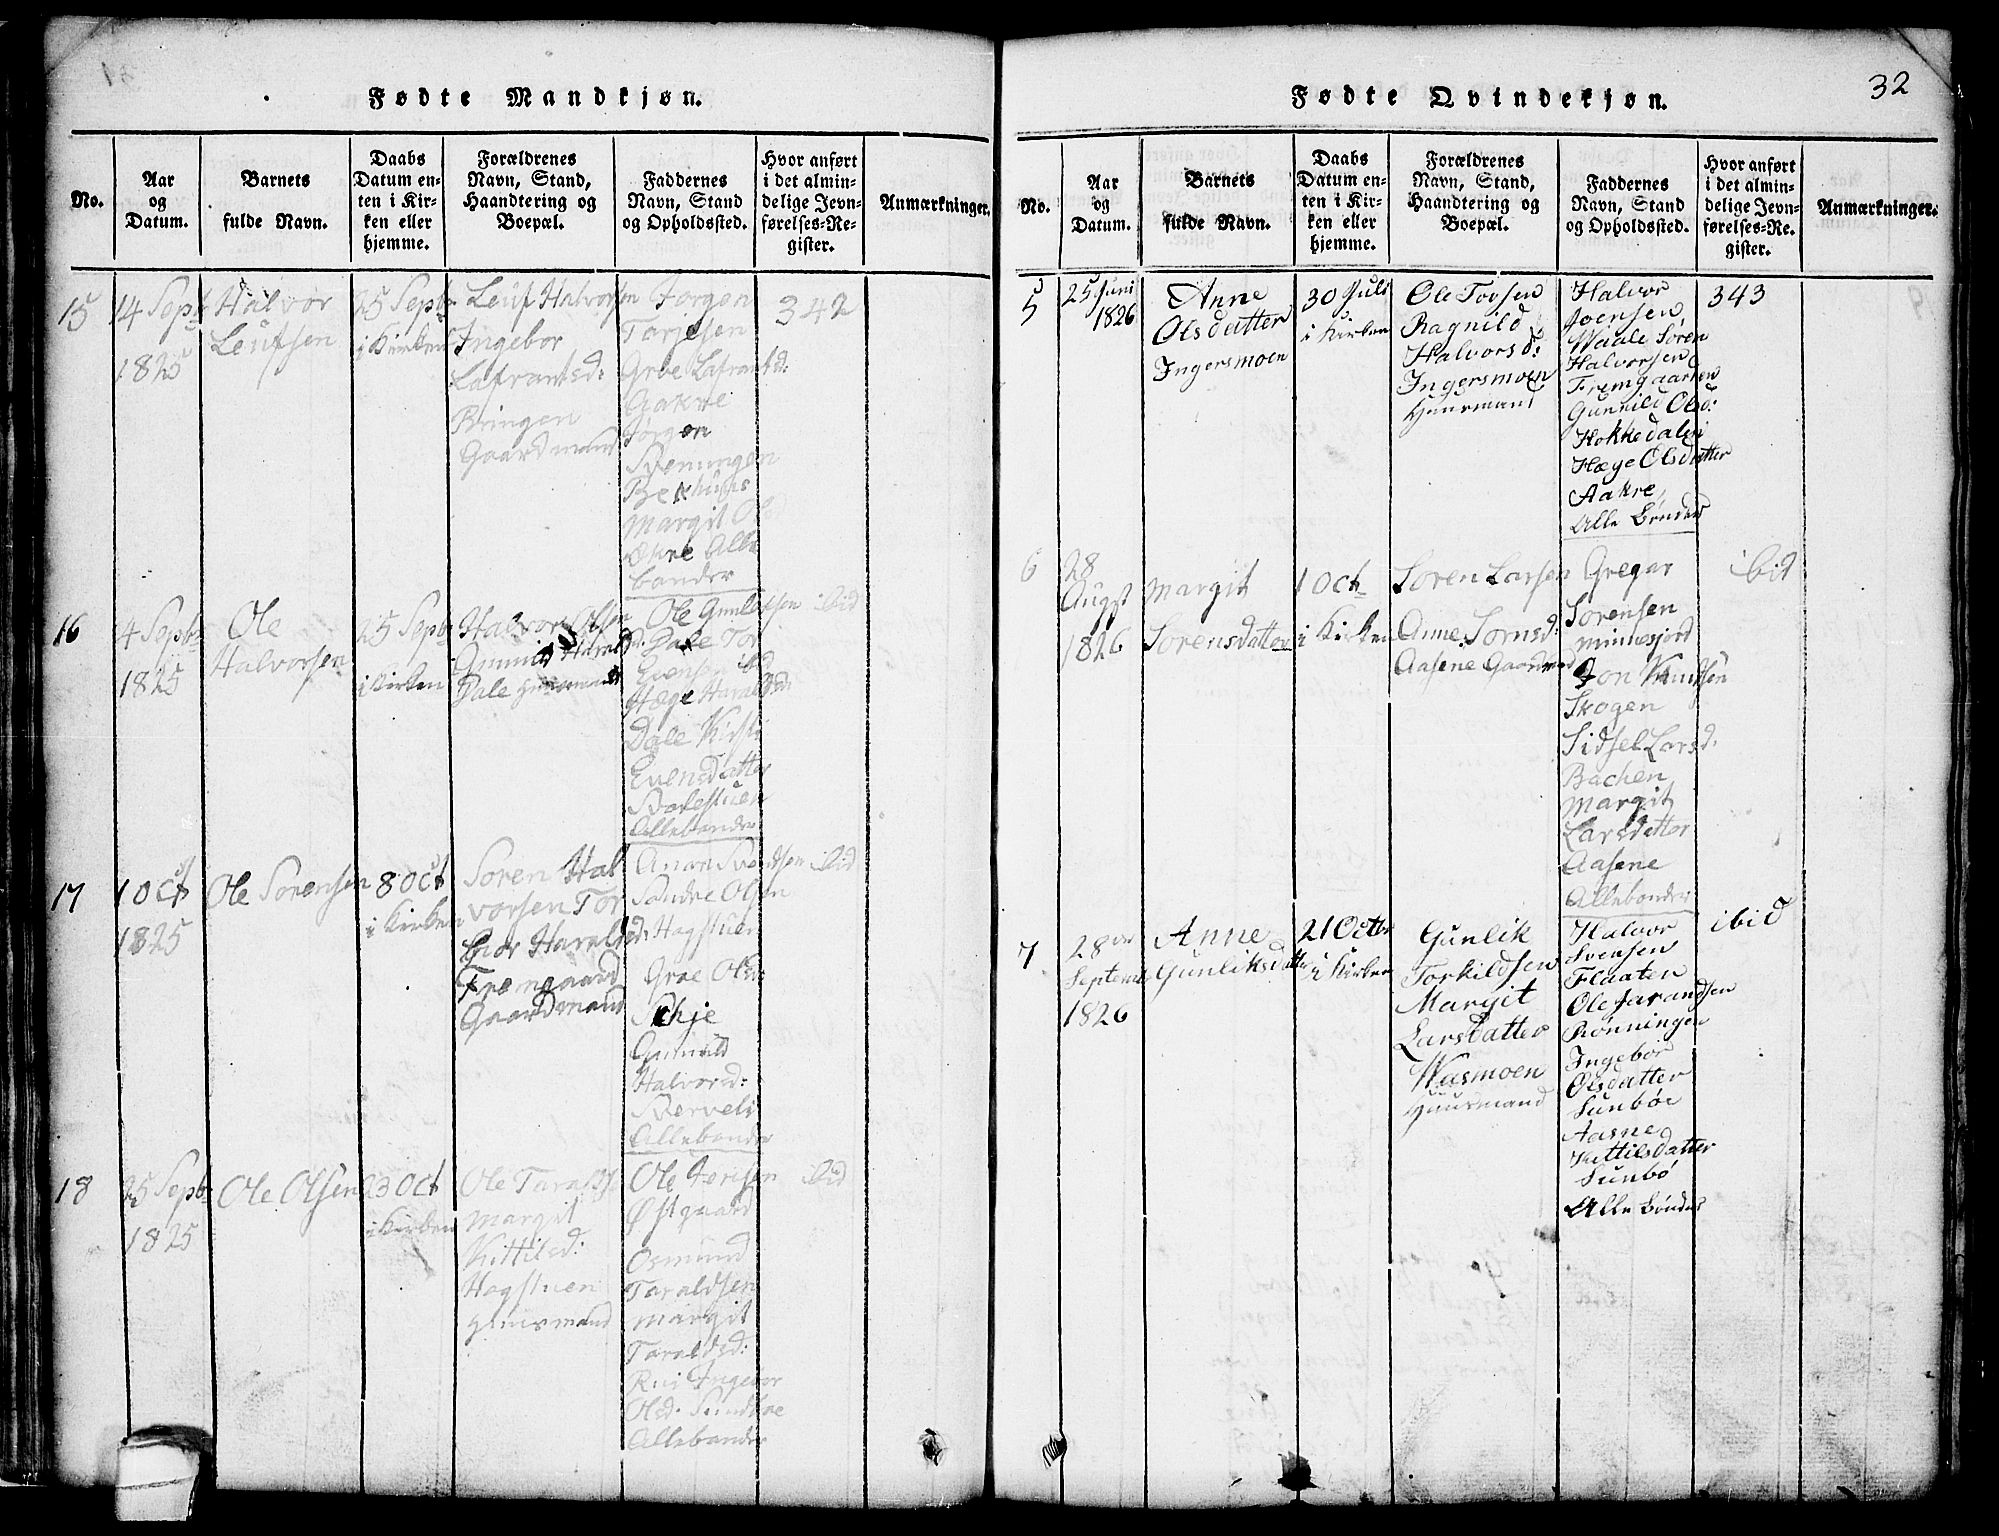 32
Fødte Mandkjøn.
No.
Aar
og
Datum.
Barnets
fulde Navn.
Daabs
Datum en-
ten i Kir-
ken eller
hjemme.
Forældrenes
Navn, Stand,
Haandtering og
Boepæl.
Faddernes
Navn, Stand
og Opholdssted.
Hvor anført
i det almin-
delige Jevn-
førelses-Re-
gister.
Anmærkninger.
15
14 Septr
1825
Halvor
Leufsen
25 Septr
i Kirken
Leuf Halvorsen
Ingebor
Lafrantsd:
Bringen
Gaardmand
Jorgen
Tarjesen
Groe Lafrantsd:
Gakre
Jørgen
Sveningen
Bekhuus
Margit
Akre Alle
bonder
342
16
4 Septr
1825
Ole
Halvorsen
25 Septr
i Kirken
Halvor Olsen
Gunnild Harald
Dale Huusmand
Ole Gunleksen
Dale Tor
Evensen ibd
Hæge Haraldsd:
Dale Kisti
Evensdatter
Bondestuen
Allebonder
ibid
17
1 Oct
1825
Ole Sorensen
8 Oct
i Kirken
Soren Hal
vorsen Tor
bior Haraldsd:
Fremgaard
Gaardmand
Anon Svendsen
Sondre Olsen
Hagstuen
Groe Olsd
Skhje
Gunnild
Halvorsd:
Sverveli
Allebonder
ibid
18
25 Septr
1825
Ole Olsen
23 Oct
i Kirken
Ole Taralds
Margit
Kittilsd:
Hagstuen
Huusmand
Ole Jensen
Østgaard
Osmund
Taraldsen
Margit
Taraldsd:
Rui Ingebor
Olsd: Sundbøe
Allebonder
ibid
Fødte Qvindekjøn.
No.
Aar
og
Datum.
Barnets
fulde Navn.
Daabs
Datum en-
ten i Kir-
ken eller
hjemme.
Forældrenes
Navn, Stand,
Haandtering og
Boepæl.
Faddernes
Navn, Stand
og Opholdssted.
Hvor anført
i det almin-
delige Jevn-
førelses-Re-
gister.
Anmærkninger.
5
25 Juni
1826
Anne
Olsdatter
Ingersmoen
30 Juli
i Kirken
Ole Tovsen
Ragnild
Halvorsd:
Ingersmoen
Huusmand
Halvor
Joensen,
Waale Søren
Halvorsen
Fremgaarden
Gunnild Olsd:
Hokkedalen
Hæge Olsdatter
Aakre,
Alle Bønder
343
6
28
Augst
1826
Margit
Sorensdatter
1 Oct
i Kirken
Soren Larsen
Anne Sornsd:
Aasene Gaardmand
Gregar
Sorensen
Minnesjord
Jon Knudsen
Skogen
Sidsel Larsd:
Bachen
Margit
Larsdatter
Aasene
Allebonder
ibid
7
28de
Septembr
1826
Anne
Gunliksdatter
21 Octbr
i Kirken
Gunlik
Torkildsen
Margit
Larsdatter
Wasmoen
Huusmand
Halvor
Svensen
Flaaten
Ole Jarandsen
Rønningen
Ingebor
Olsdatter
Sunbøe
Aasne,
Kittilsdatter
Sunbø
Alle Bønder
ibid